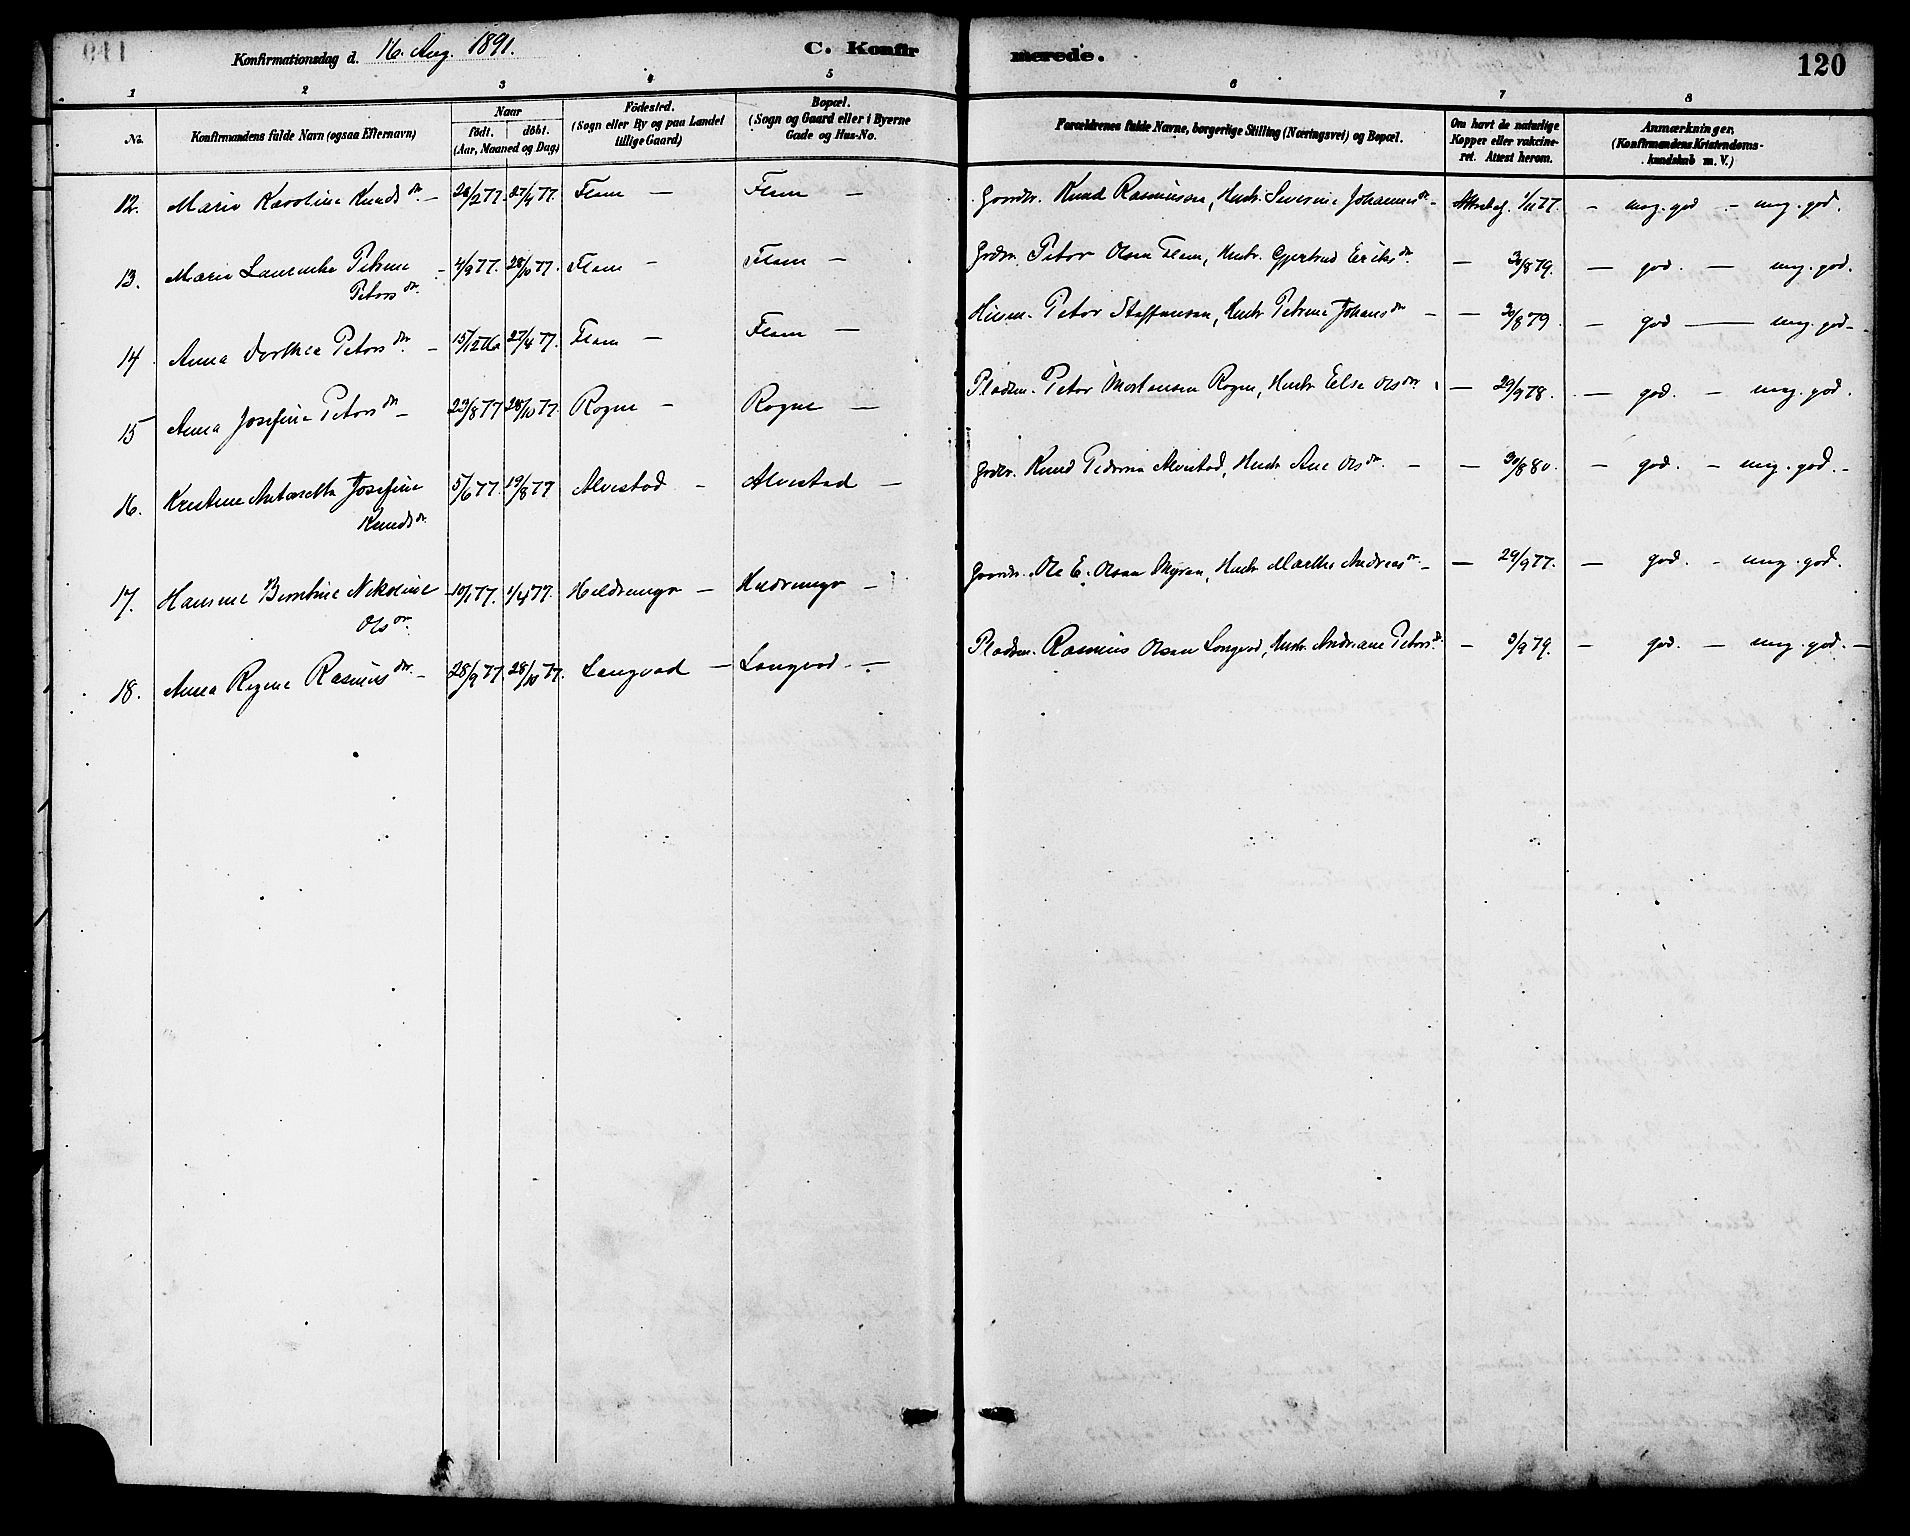 Konfirmationsdag d. 16. Aug. 1891. C. Konfirmerede. 120
1 2 3 4 5 6 7 8
No. Konfirmandens fulde Navn (ogsaa Efternavn) Naar födt. döbt. (Aar, Maaned og Dag) Födested. (Sogn eller By og paa Landet tillige Gaard) Bopæl. (Sogn og Gaard eller i Byerne Gade og Hus-No. Forældrenes fulde Navne, borgerlige Stilling (Næringsvei) og Bopæl. Om havt de naturlige Kopper eller vaksineret. Attest herom. Anmærkninger. (Konfirmandens Kristendomskundskab m. V.)
12. Marie Karoline Knudsdr. — 28/2 77. 27/4 77. Flem — Flem — Gaardbr. Knud Rasmussen, Hustr. Severine Johannesdr. — 1/11 77. — meg. god — meg. god.
13. Marie Laurentse Petrine Petersdr. — 4/9 77. 28/10 77. Flem — Flem — Grdbr. Peter Olsen Flem, Hustr. Gjertrud Eriksdr. — 30/8 79. — god. — meg. god.
14. Anna Dorthea Petersdr. — 15/12 76 27/4 77. Flem — Flem — Husm. Peter Staffensen, Hustr. Petrine Johansdr. — 30/8 79. — god — meg. god —
15 Anna Josefine Petersdr. — 23/8 77 28/10 77. Rogne — Rogne — Pladsm. Peter Mortensen Rogne, Hustr. Else Olsdr. — 29/9 78. — god. — meg. god.
16. Kristine Antonette Josefine Knudsdr. 5/6 77. 19/8 77 Alvestad — Alvestad — Grdbr. Knud Pedersen Alvestad, Hustr. Ane Olsdr. — 30/8 80. — god. — meg. god. —
17. Hansine Berntine Nikoline Olsdr. 10/1 77. 1/4 77. Hildremyr — Hildremyr — Gaardbr. Ole E. Olsen Myren, Hustr. Marthe Andreasdr. — 29/9 77. — god. — meg. god.
18. Anna Regine Rasmusdr. — 28/9 77 28/10 77. Longvad — Longvad — Pladsm. Rasmus Olsen Longvad, Hustr. Andriane Petersdr. — 3/9 79. — god. — meg. god. —